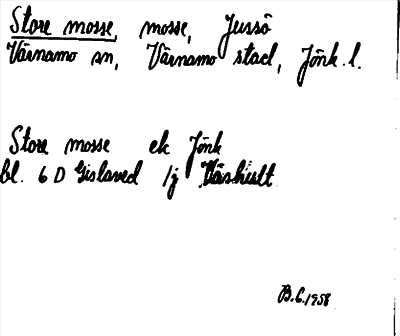 Store mosse, mosse, Jussö
Värnamo sn, Värnamo stad, Jönk. l.
Store mosse ek Jönk
bl. 6 D Gislaved 1j Våshult
B.C. 1958